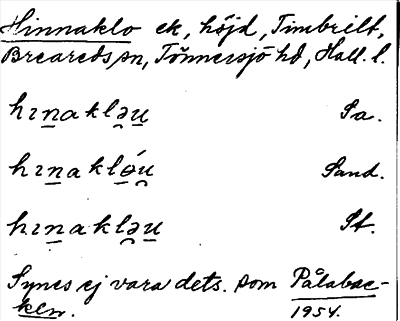 Hinnaklo ek, höjd, Timbrilt,
Breareds sn, Tönnersjö hd, Hall. l.
hɪn̲aklə̯u̲ Sa.
hɪn̲aklə̲́u̯ Sand.
hɪn̲aklə̯u̲ St.
Synes ej vara dets. som Pålabac-
ken. 1954.